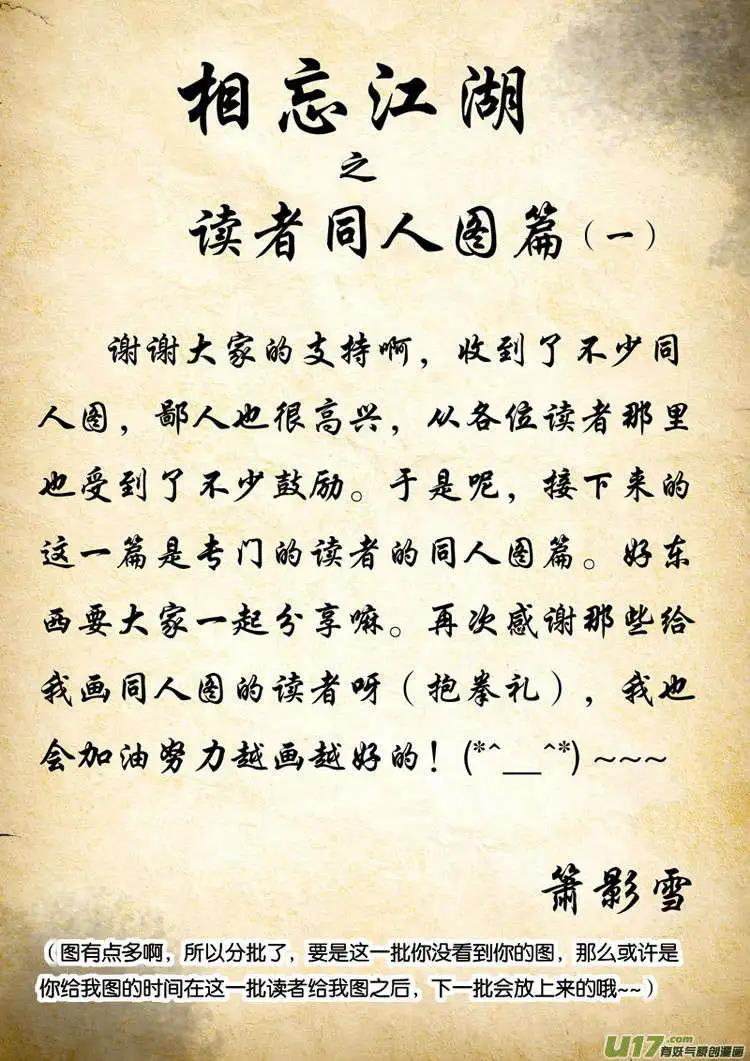 相忘江湖
之
读者同人图篇（一）
谢谢大家的支持啊，收到了不少同
人图，鄙人也很高兴，从各位读者那里
也受到了不少鼓励。于是呢，接下来的
这一篇是专门的读者的同人图篇。好东
西要大家一起分享嘛。再次感谢那些给
我画同人图的读者呀（抱拳礼），我也
会加油努力越画越好的！(*^__^*) ~~~
箫影雪
（图有点多啊，所以分批了，要是这一批你没看到你的图，那么或许是
你给我图的时间在这一批读者给我图之后，下一批会放上来的哦~~）
U17.com
有妖气原创漫画